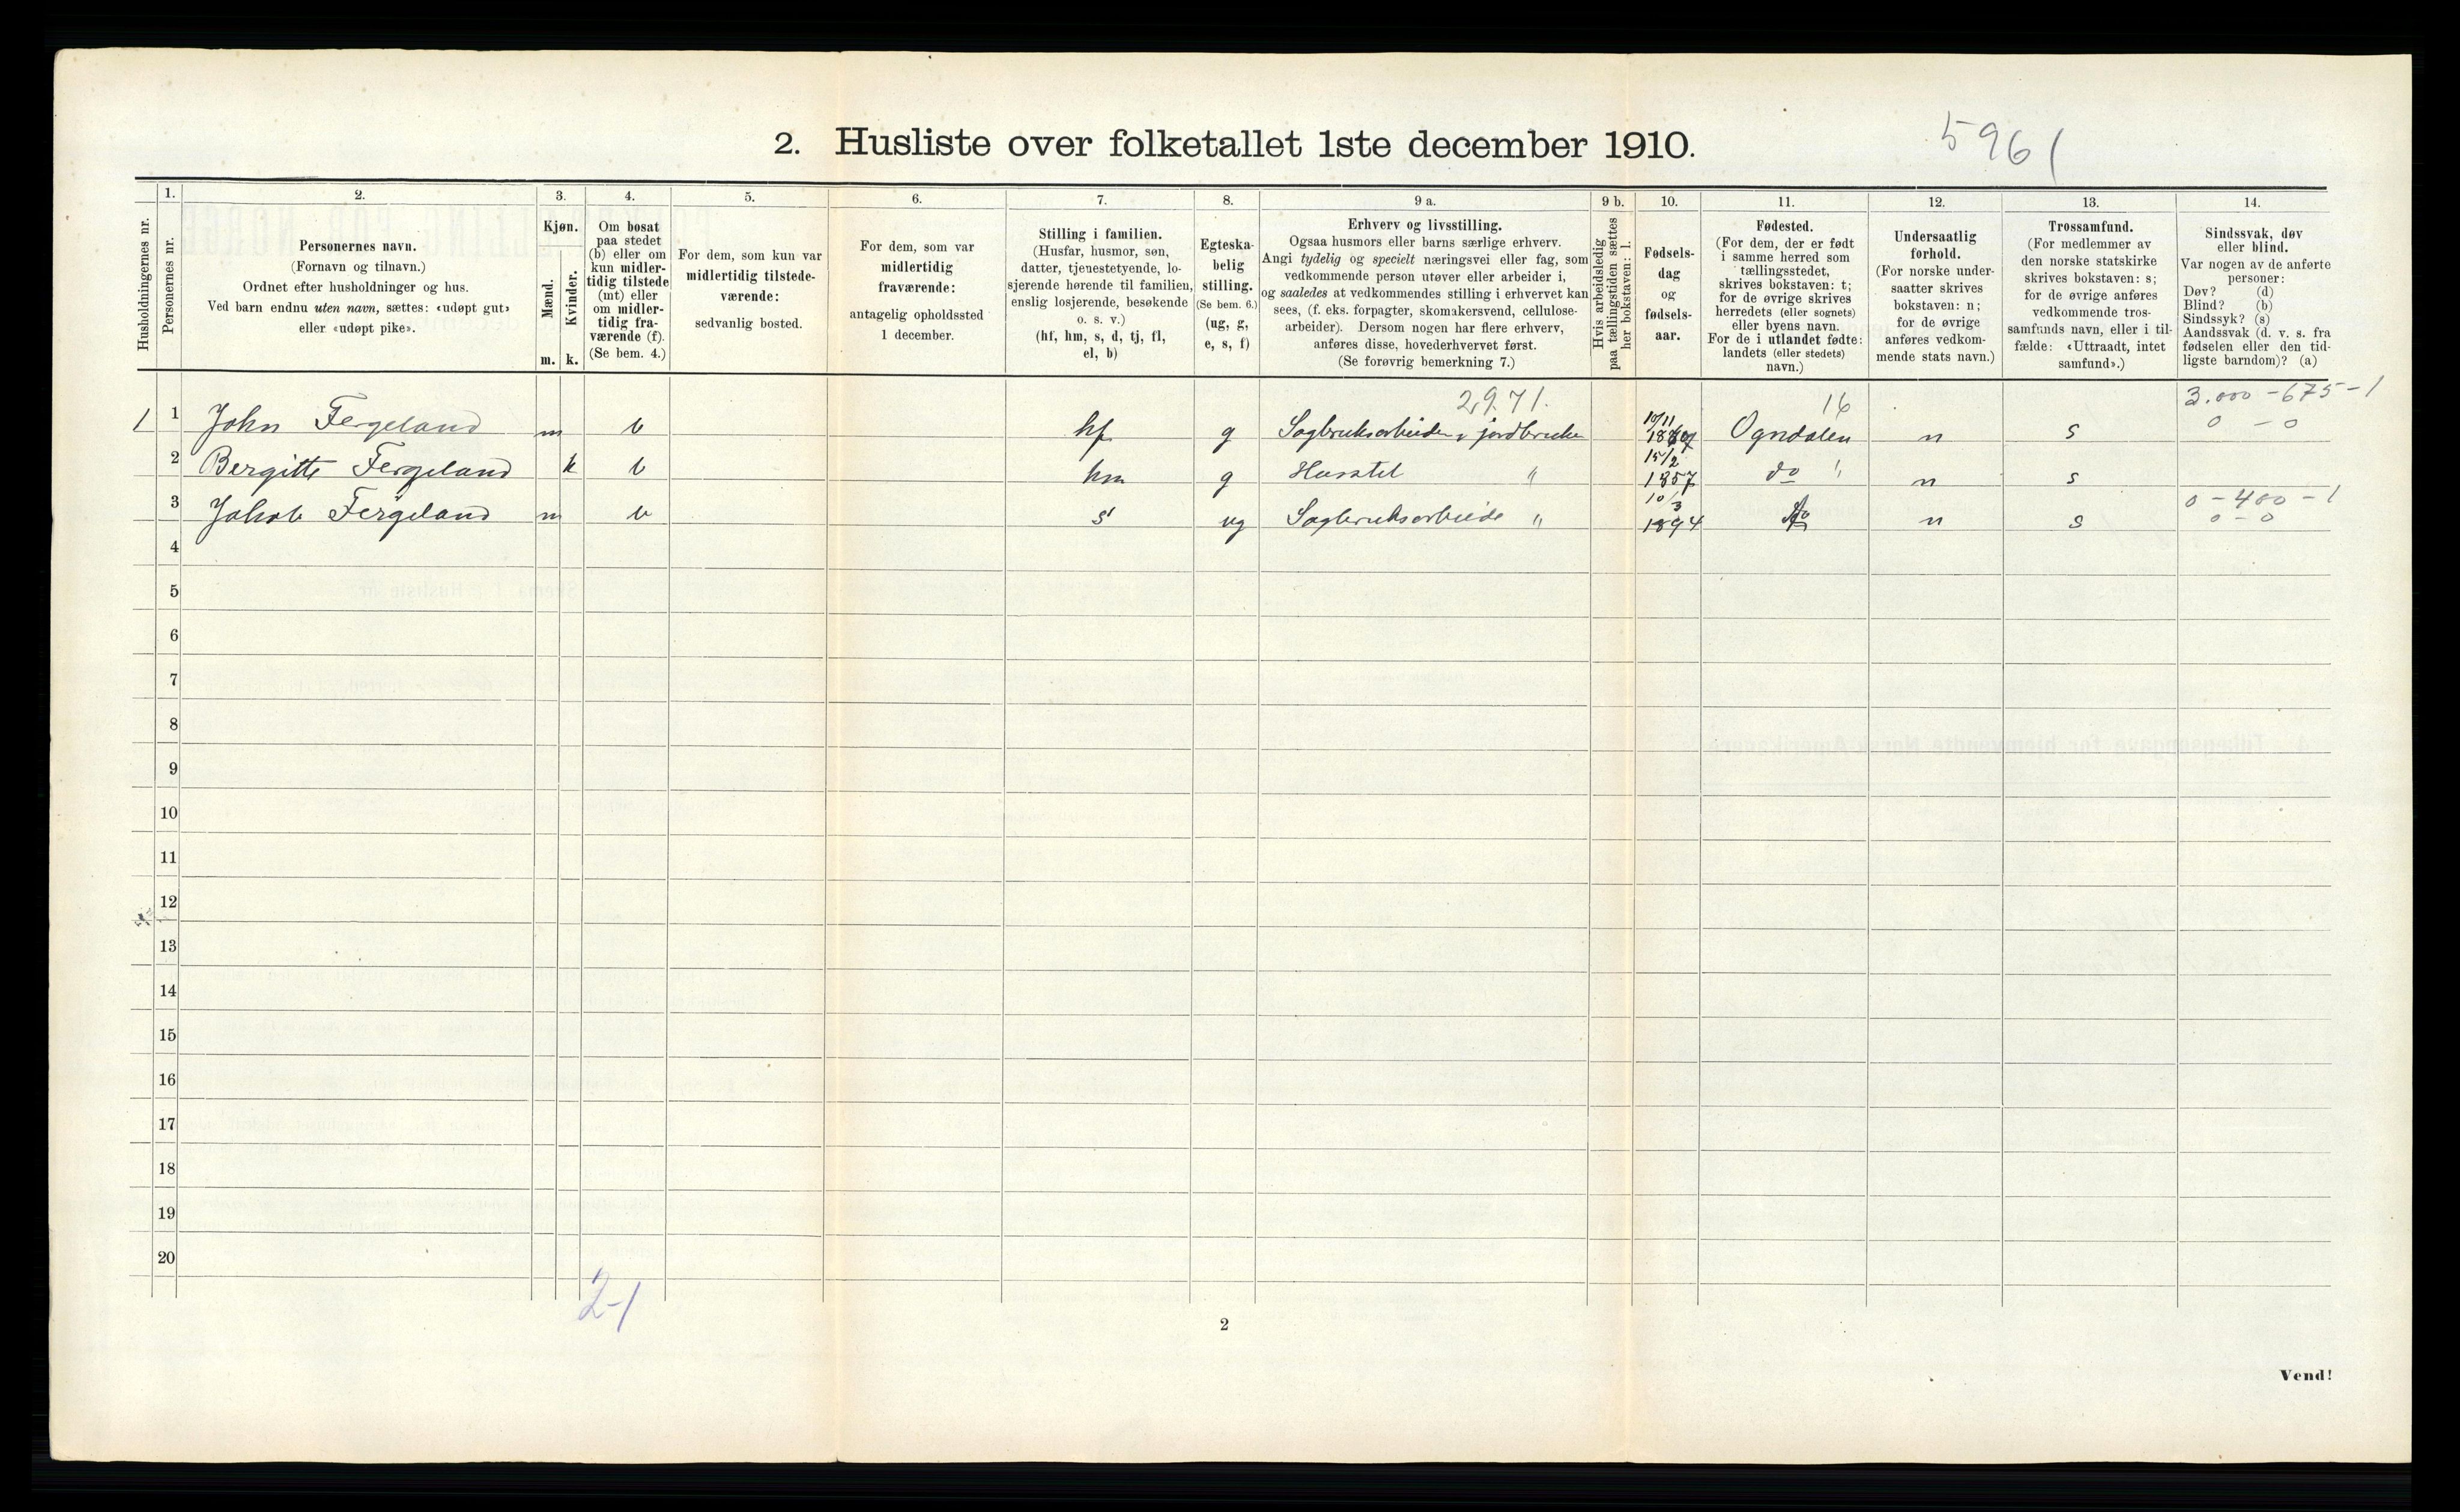 2. Husliste over folketallet 1ste december 1910.
5961
Husholdningernes nr.
1.
Personernes nr.
2.
Personernes navn.
(Fornavn og tilnavn.)
Ordnet efter husholdninger og hus.
Ved barn endnu uten navn, sættes: «udøpt gut»
eller «udøpt pike».
3.
Kjøn.
Mænd.
Kvinder.
m. k.
4.
Om bosat
paa stedet
(b) eller om
kun midler-
tidig tilstede
(mt) eller
om midler-
tidig fra-
værende (f).
(Se bem. 4.)
5.
For dem, som kun var
midlertidig tilstede-
værende:
sedvanlig bosted.
6.
For dem, som var
midlertidig
fraværende:
antagelig opholdssted
1 december.
7.
Stilling i familien.
(Husfar, husmor, søn,
datter, tjenestetyende, lo-
sjerende hørende til familien,
enslig losjerende, besøkende
o. s. v.)
(hf, hm, s, d, tj, fl,
el, b)
8.
Egteska-
belig
stilling.
(Se bem. 6.)
(ug, g,
e, s, f)
9 a.
Erhverv og livsstilling.
Ogsaa husmors eller barns særlige erhverv.
Angi tydelig og specielt næringsvei eller fag, som
vedkommende person utøver eller arbeider i,
og saaledes at vedkommendes stilling i erhvervet kan
sees, (f. eks. forpagter, skomakersvend, cellulose-
arbeider). Dersom nogen har flere erhverv,
anføres disse, hovederhvervet først.
(Se forøvrig bemerkning 7.)
9 b.
Hvis arbeidsledig
paa tællingstiden sættes
her bokstaven: l.
10.
Fødsels-
dag
og
fødsels-
aar.
11.
Fødested.
(For dem, der er født
i samme herred som
tællingsstedet,
skrives bokstaven: t;
for de øvrige skrives
herredets (eller sognets)
eller byens navn.
For de i utlandet fødte:
landets (eller stedets)
navn.)
12.
Undersaatlig
forhold.
(For norske under-
saatter skrives
bokstaven: n;
for de øvrige
anføres vedkom-
mende stats navn.)
13.
Trossamfund.
(For medlemmer av
den norske statskirke
skrives bokstaven: s;
for de øvrige anføres
vedkommende tros-
samfunds navn, eller i til-
fælde: «Uttraadt, intet
samfund».)
14.
Sindssvak, døv
eller blind.
Var nogen av de anførte
personer:
Døv? (d)
Blind? (b)
Sindssyk? (s)
Aandssvak (d. v. s. fra
fødselen eller den tid-
ligste barndom)? (a)
2971. 16 3.000 - 675 - 1
1 1 John Fergeland m b hf g Sagbruksarbeider, jordbruker 10/11 Ogndalen n s 0 - 0
2 Bergitte Fergeland k b hm g Husstel " 15/2 1857 do " n s
3 Jakob Fergeland m b s ug Sagbruksarbeide " 10/3 1894 do n s 0 - 400 - 1
0 - 0
4
5
6
7
8
9
10
11
12
13
14
15
16
17
18
19
20
2-1
2
Vend!